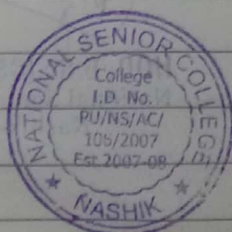 NATIONAL SENIOR COLLEGE
College
I.D. No.
PU/NS/AC/
106/2007
Est.2007-08
NASHIK